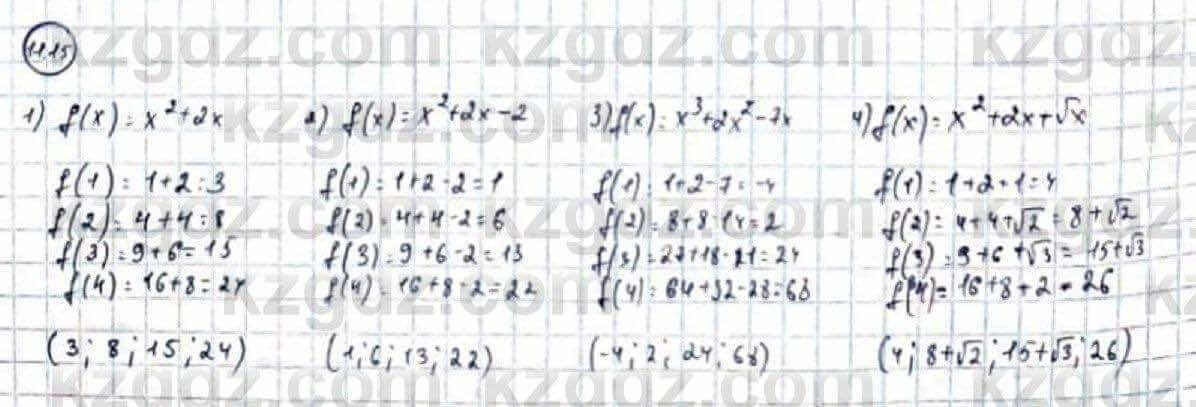 11.15
1) f(x) = x²+2x 2) f(x) = x²+2x-2 3) f(x) = x³+2x²-7x 4) f(x) = x²+2x+√x
f(1) = 1+2 = 3 f(1) = 1+2-2 = 1 f(1) = 1+2-7 = -4 f(1) = 1+2+1 = 4
f(2) = 4+4 = 8 f(2) = 4+4-2 = 6 f(2) = 8+8-14 = 2 f(2) = 4+4+√2 = 8+√2
f(3) = 9+6 = 15 f(3) = 9+6-2 = 13 f(3) = 27+18-21 = 24 f(3) = 9+6+√3 = 15+√3
f(4) = 16+8 = 24 f(4) = 16+8-2 = 22 f(4) = 64+32-28 = 68 f(4) = 16+8+2 = 26
(3; 8; 15; 24) (1; 6; 13; 22) (-4; 2; 24; 68) (4; 8+√2; 15+√3; 26)
kzgdz.com